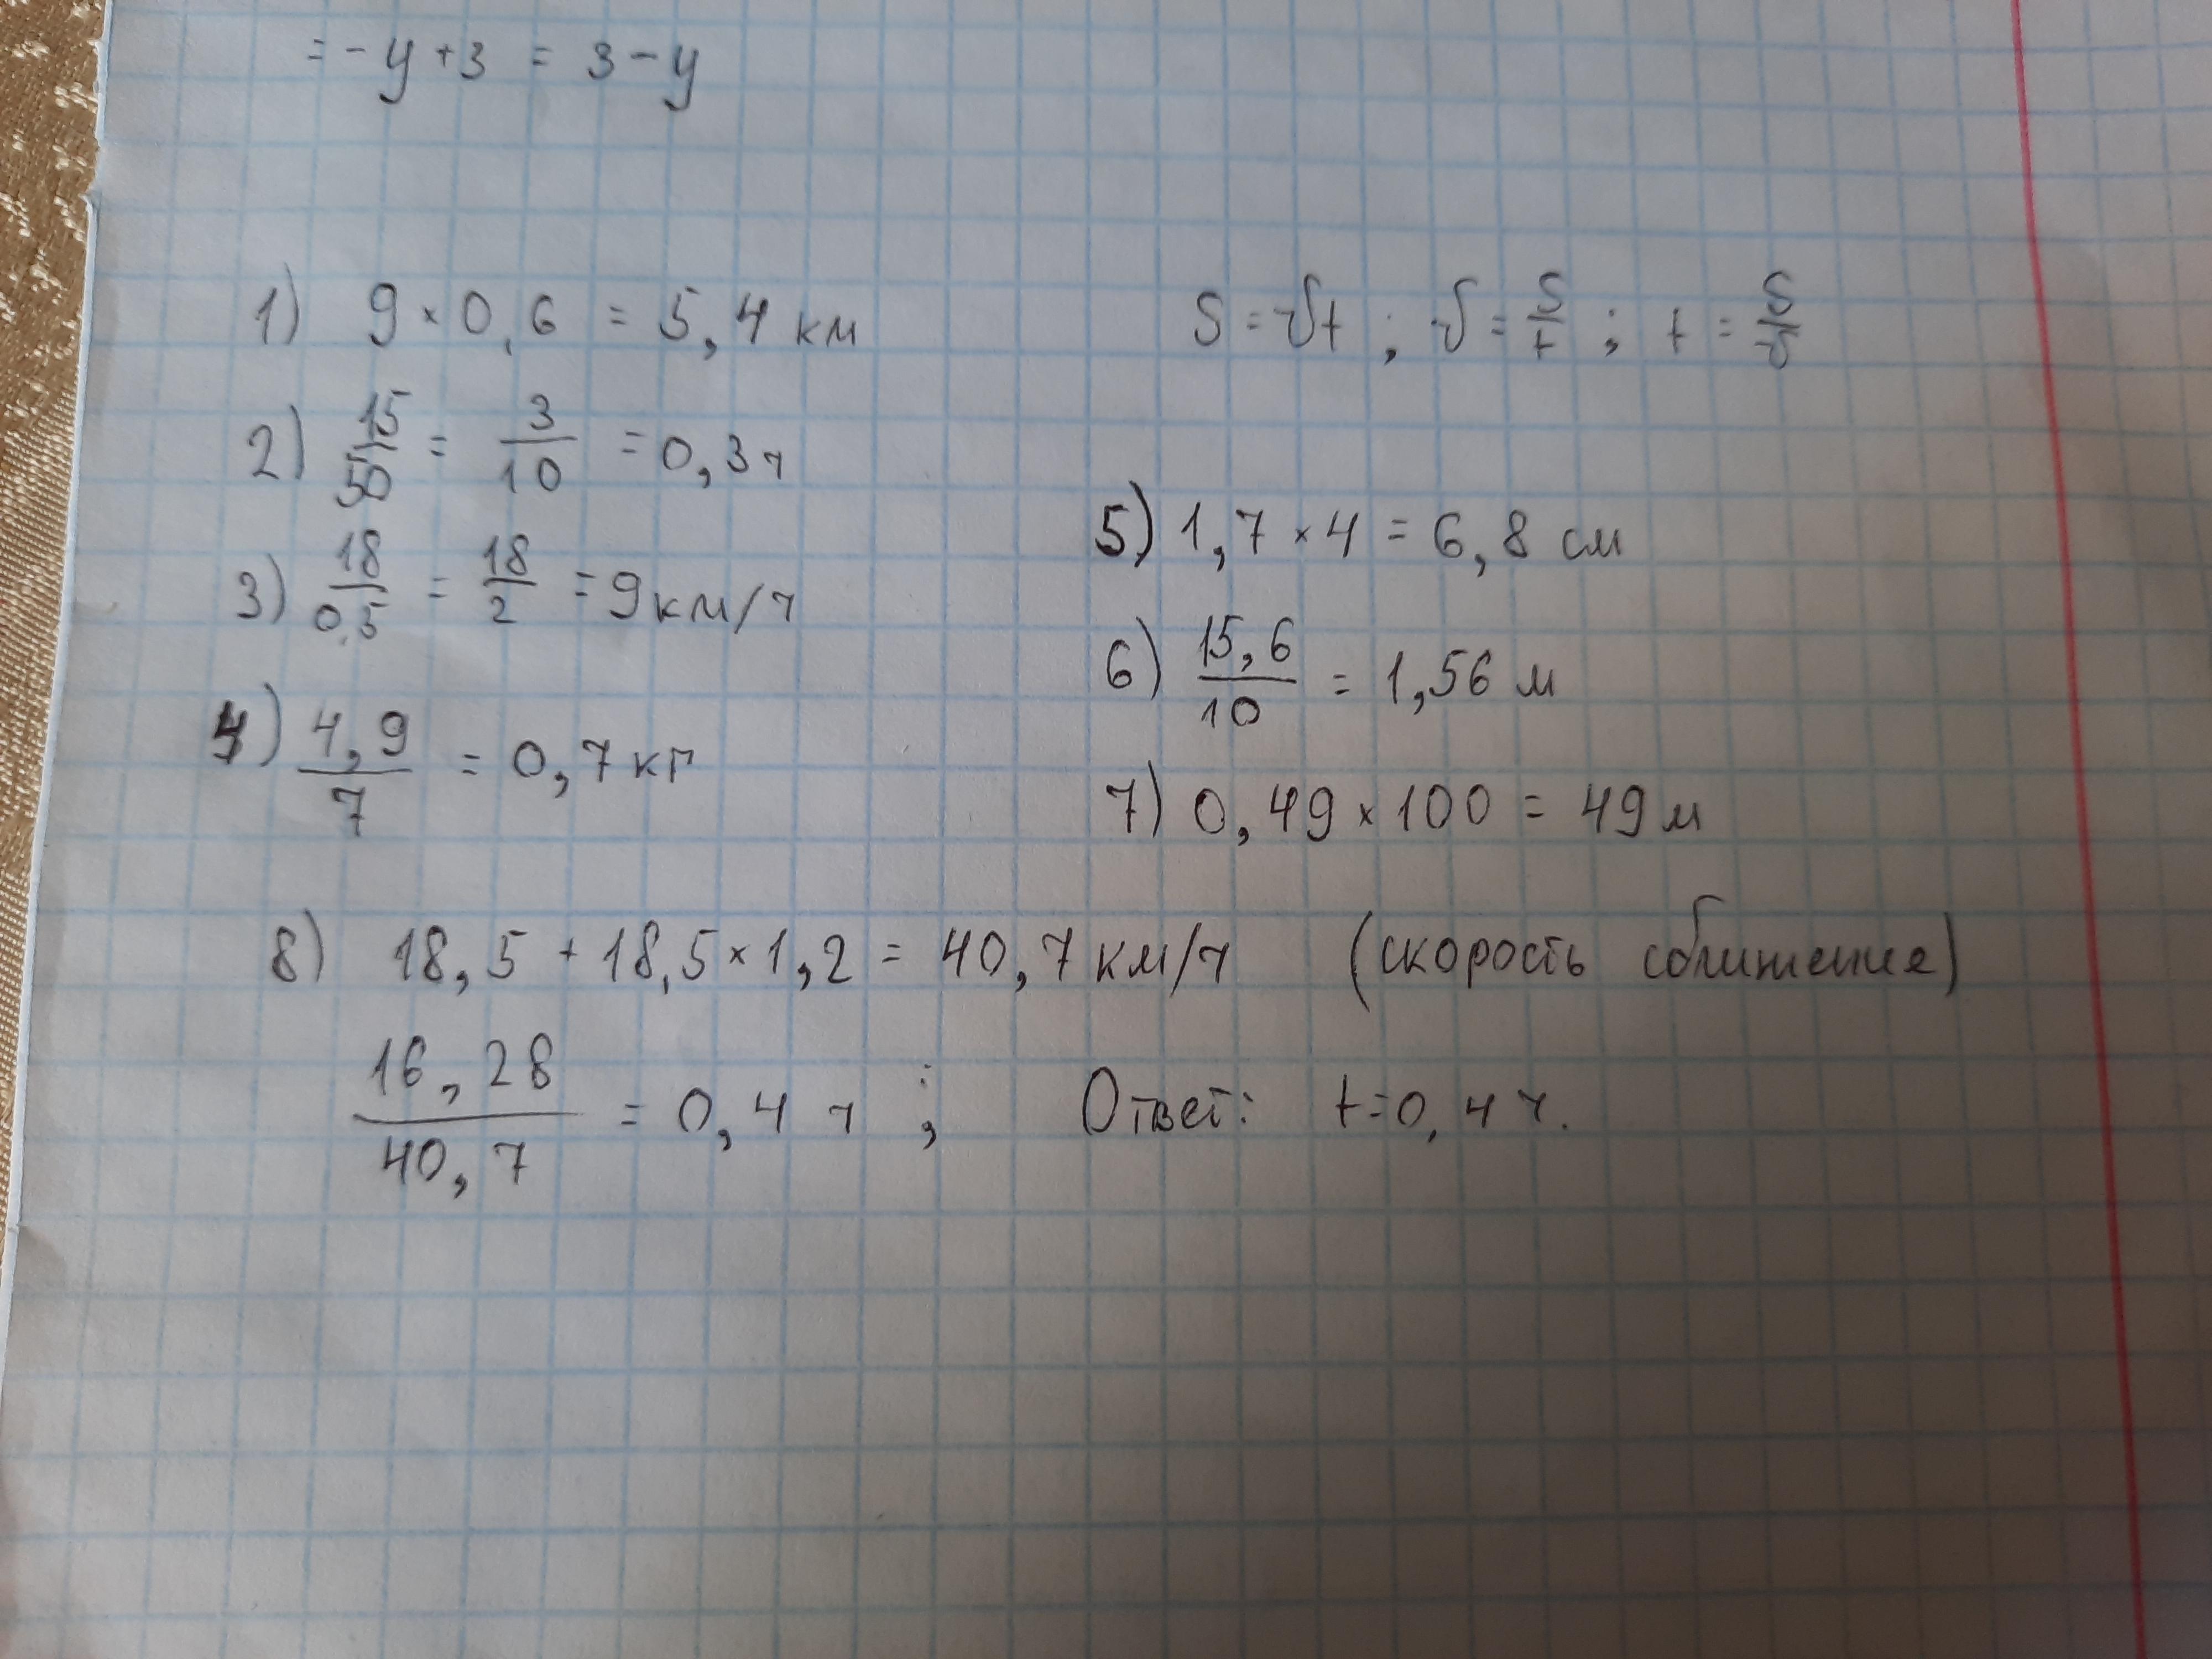 = -y + 3 = 3 - y
1) 9 × 0,6 = 5,4 км
S = vt ; v = S/t ; t = S/v
2) 15/50 = 3/10 = 0,3 ч
3) 18/0,5 = 18/2 = 9 км/ч
4) 4,9/7 = 0,7 кг
5) 1,7 × 4 = 6,8 см
6) 15,6/10 = 1,56 м
7) 0,49 × 100 = 49 м
8) 18,5 + 18,5 × 1,2 = 40,7 км/ч (скорость сближения)
16,28/40,7 = 0,4 ч ; Ответ: t = 0,4 ч.